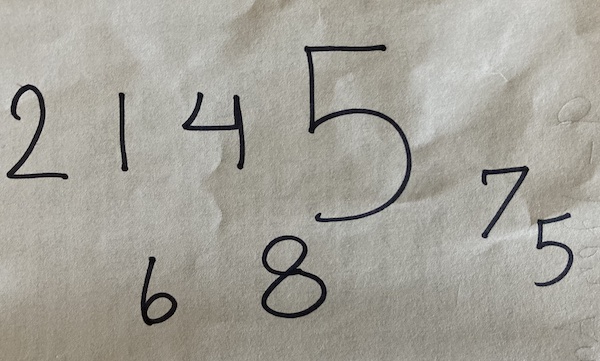 2 1 4 5
7 5
6 8